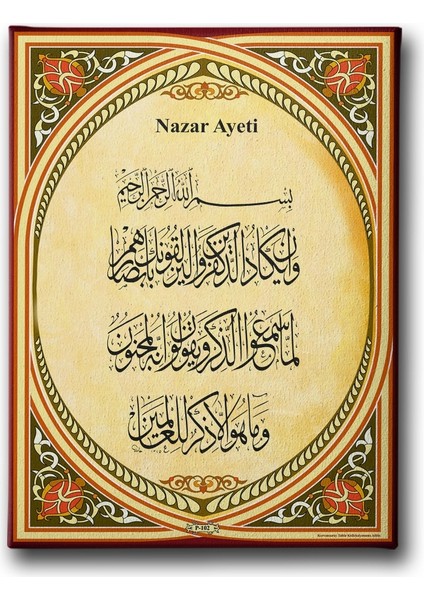 Nazar Ayeti
بسم الله الرحمن الرحيم
وان يكاد الذين كفروا ليزلقونك بابصارهم
لما سمعوا الذكر ويقولون انه لمجنون
وما هو الا ذكر للعالمين
P-102